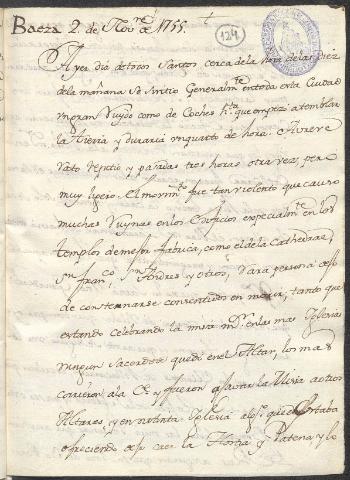 Baeza 2 de Nov.re de 1755
124
Ayer dia de todos Santos cerca de la hora de las diez
de la mañana se sintio Generalm.te en toda esta Ciudad
un gran Ruydo como de Coches h.ta que empezó a temblar
la tierra y duraria un quarto de hora. A breve
rato repitio y pasadas tres horas otra vez, pero
muy ligero. El movim.to fue tan violento que causo
muchas Ruynas en los Edificios especialm.te en los
templos de mejor fabrica, como el de la Cathedral,
S.n Fran.co S.n Andres y otros,
de consternarse consentidos en morir, tanto que
estando celebrando la misa m.r en las mas Iglesias
ningun Sacerdote quedó en el Altar, los mas
corrieron a la Ce y fueron a acavar la Missa a otros
Altares y en Iglesia que estaba
ofreciendo caer la Hostia y Patena y lo